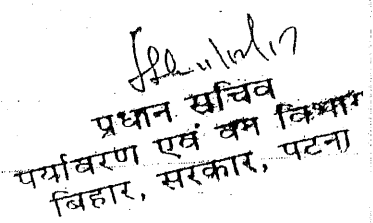 11/12/17
प्रधान सचिव
पर्यावरण एवं वन विभाग
बिहार, सरकार, पटना